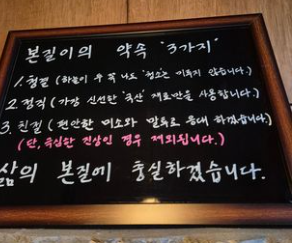 본질이의 약속 '3가지'
1. 청결 (하늘이 두 쪽 나도 청소는 미루지 않습니다.)
2. 정직 (가장 신선한 '국산' 재료만을 사용합니다.)
3. 친절 (편안한 미소와 말투로 응대 하겠습니다.)
(단, 극심한 진상인 경우 제외됩니다.)
삶의 본질에 충실하겠습니다.